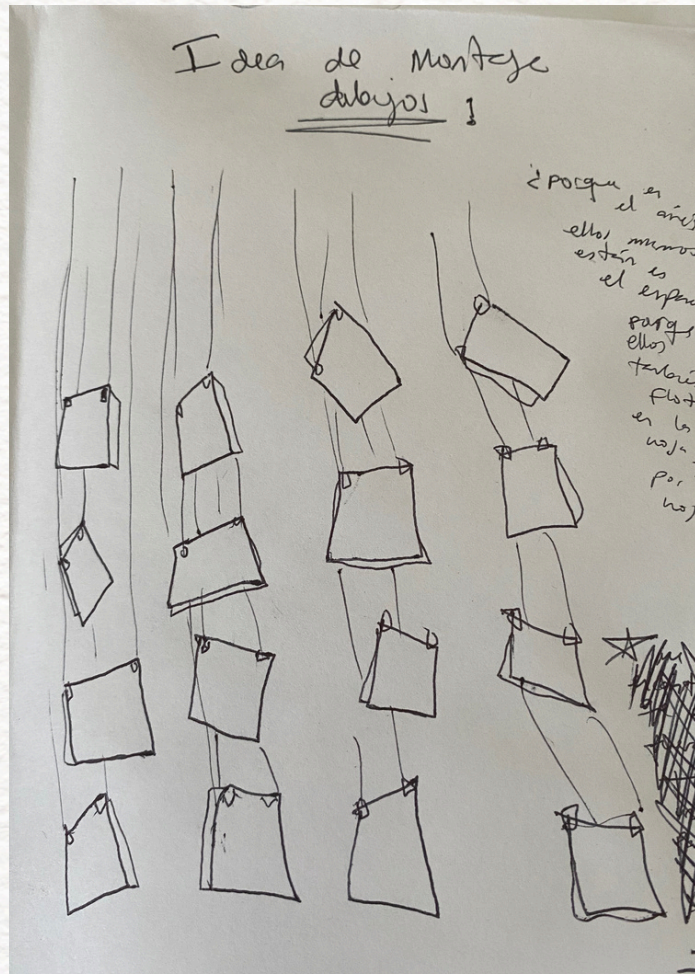 Idea de Montaje
dabujos 1
¿porque es
el
ellos mismos
están es
el espa
porq
ellos
tambié
flot
es la
hoja
por
hoj